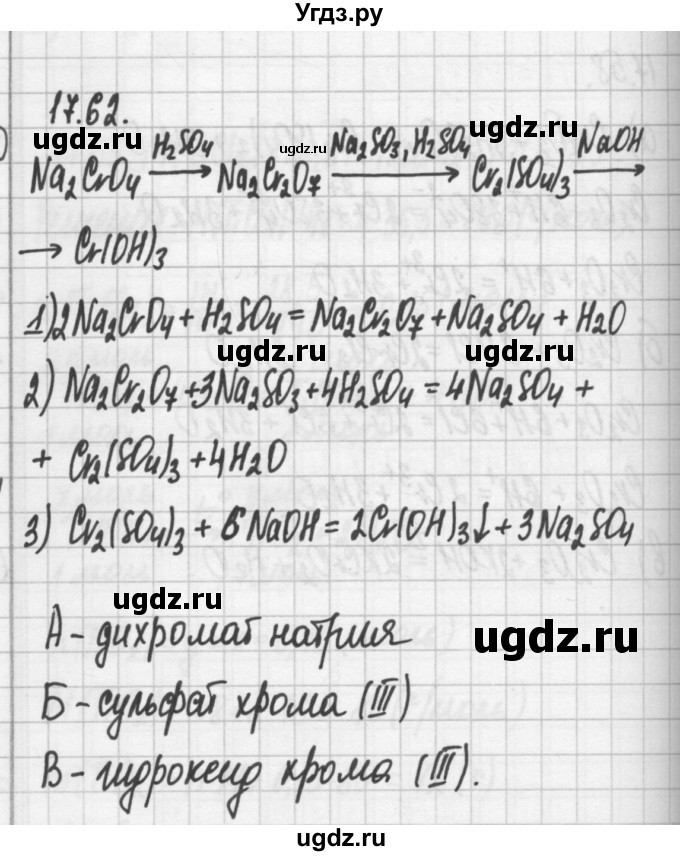 Угдз.ру
17.62.
ugdz.ru ugdz.ru ugdz.ru ugdz.ru
Na₂CrO₄ —H₂SO₄→ Na₂Cr₂O₇ —Na₂SO₃, H₂SO₄→ Cr₂(SO₄)₃ —NaOH→
→ Cr(OH)₃
1) 2Na₂CrO₄ + H₂SO₄ = Na₂Cr₂O₇ + Na₂SO₄ + H₂O
ugdz.ru ugdz.ru
2) Na₂Cr₂O₇ + 3Na₂SO₃ + 4H₂SO₄ = 4Na₂SO₄ +
+ Cr₂(SO₄)₃ + 4H₂O
3) Cr₂(SO₄)₃ + 6NaOH = 2Cr(OH)₃↓ + 3Na₂SO₄
ugdz.ru
А - дихромат натрия
ugdz.ru
Б - сульфат хрома (III)
В - гидроксид хрома (III).
ugdz.ru